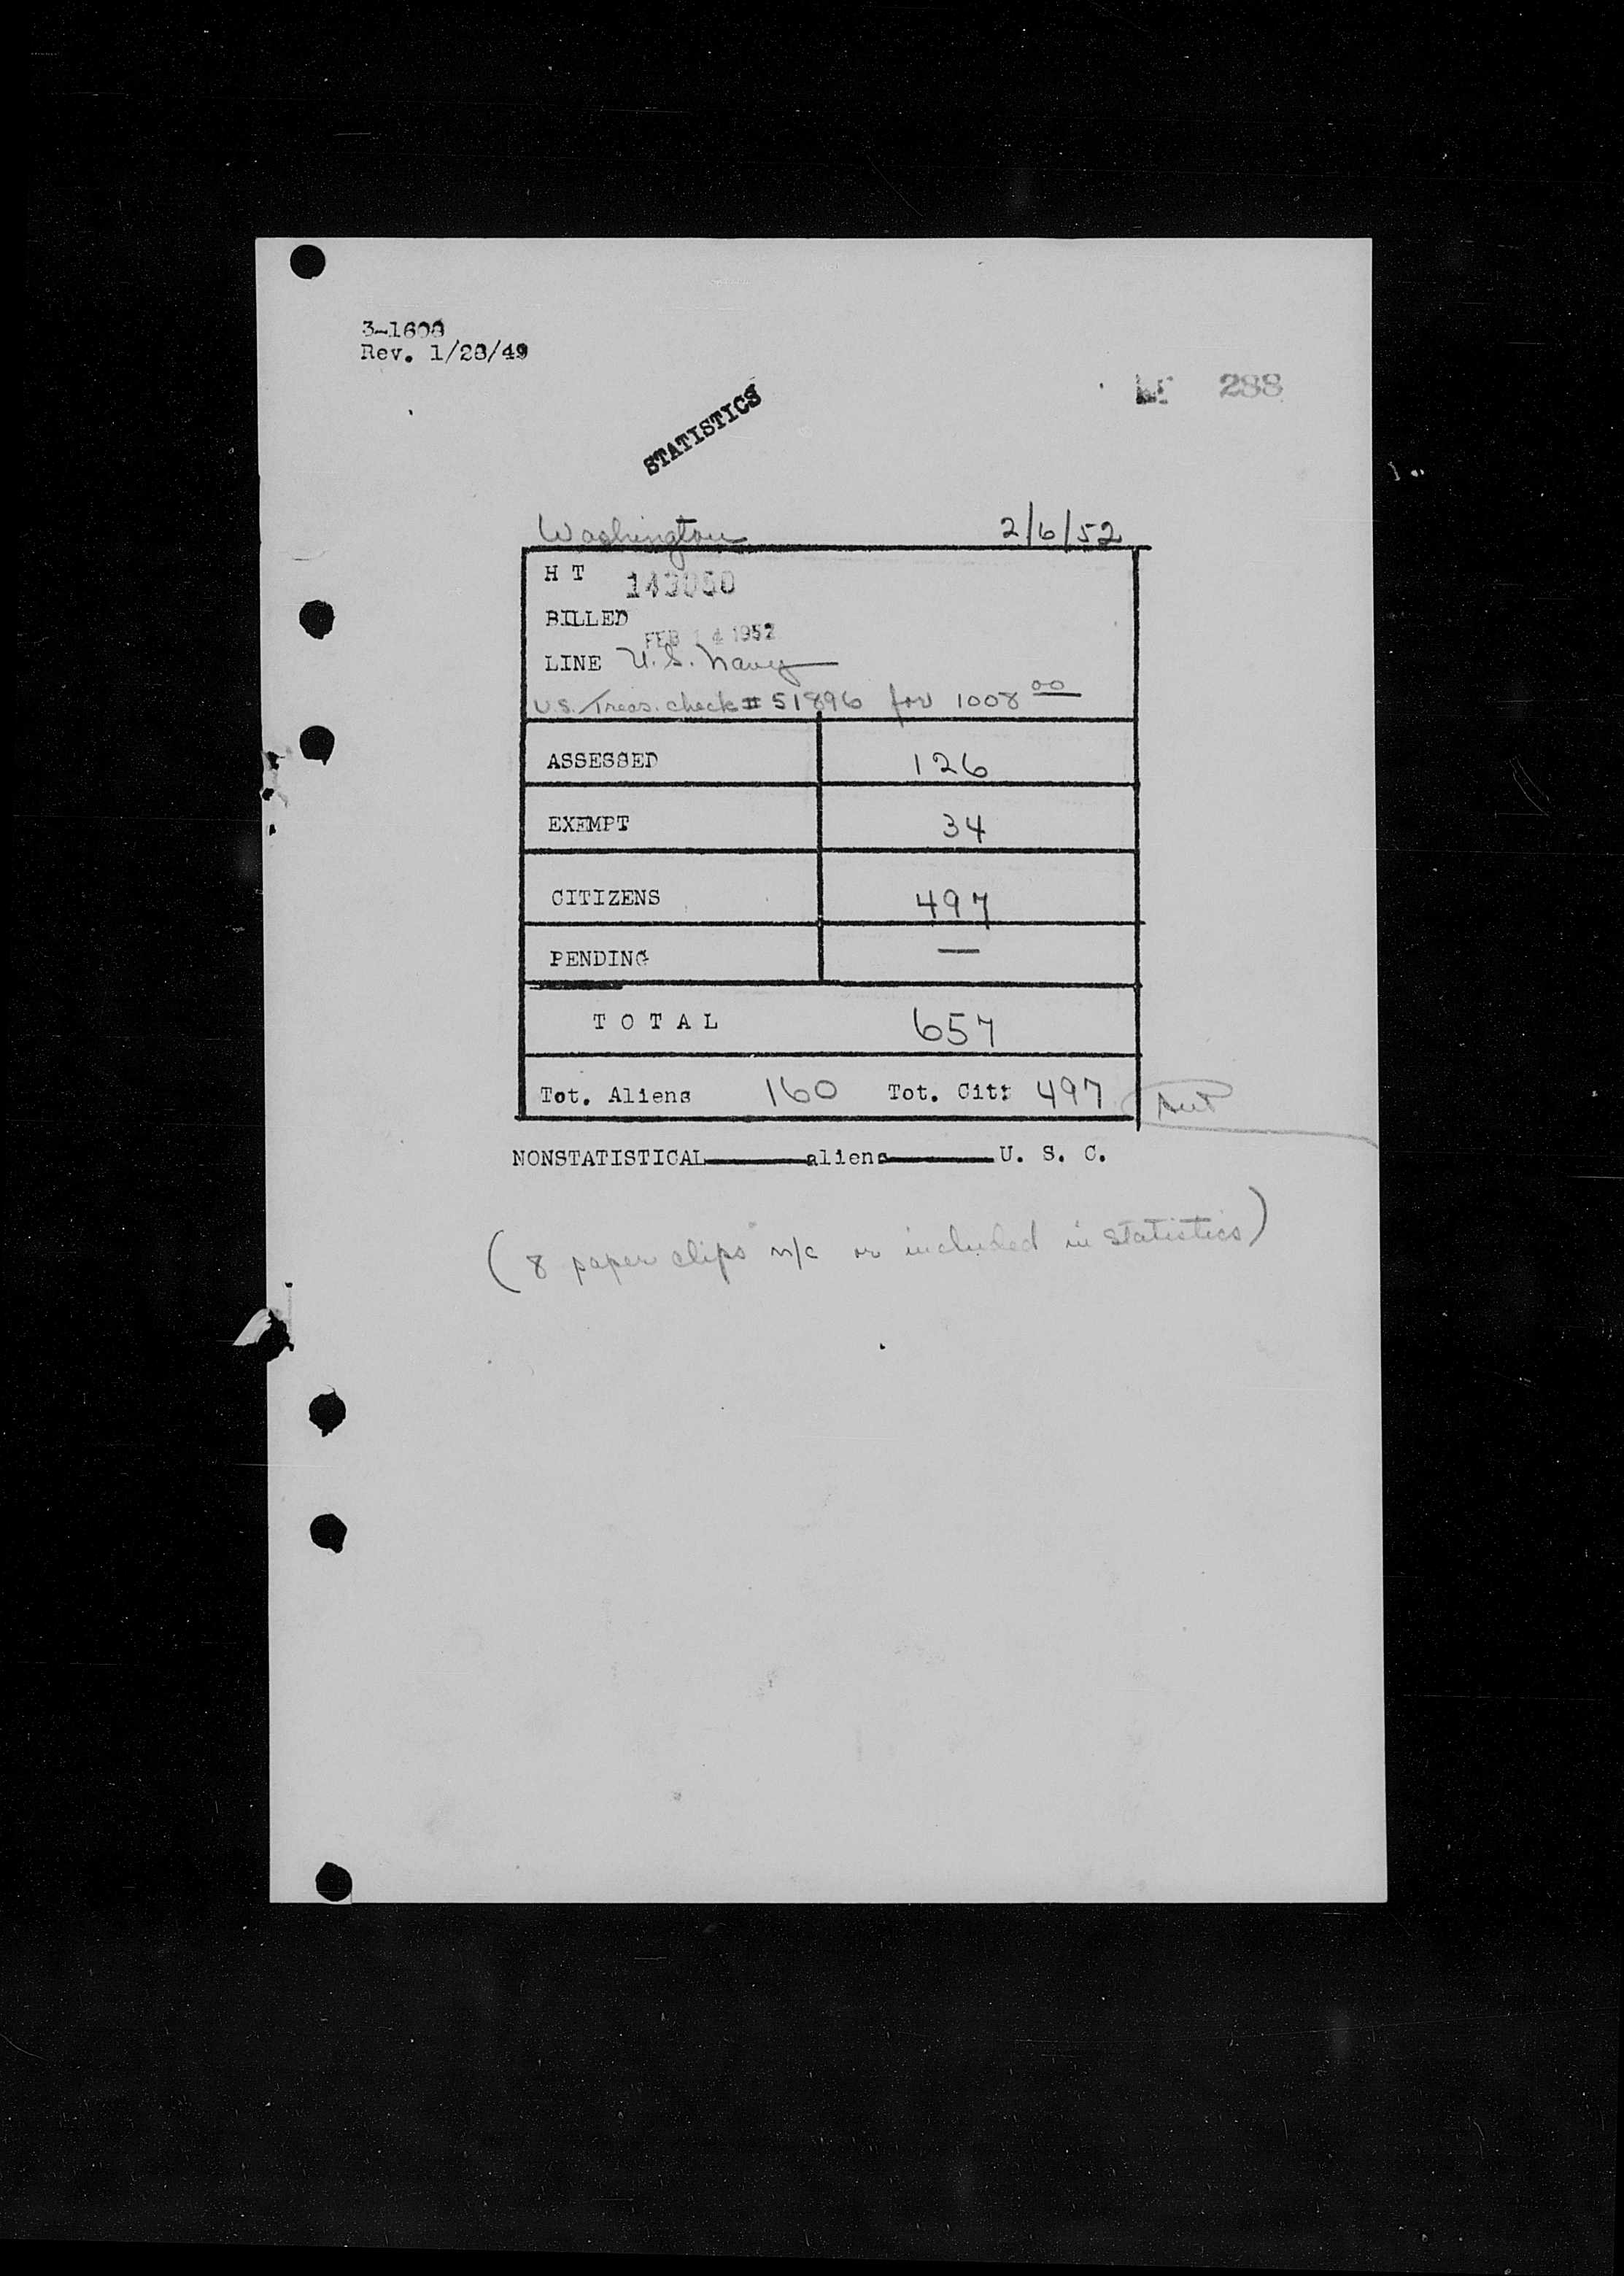 3-1600
Rev. 1/28/49
288
STATISTICS
Washington 2/6/52
H T 143050
BILLED
FEB 14 1952
LINE U.S. Navy
U.S. Treas. check # 51896 for 1008 00
ASSESSED 126
EXEMPT 34
CITIZENS 497
PENDING —
T O T A L 657
Tot. Aliens 160 Tot. Cit: 497
NONSTATISTICAL aliens U. S. C.
(8 paper clips n/c or included in statistics)